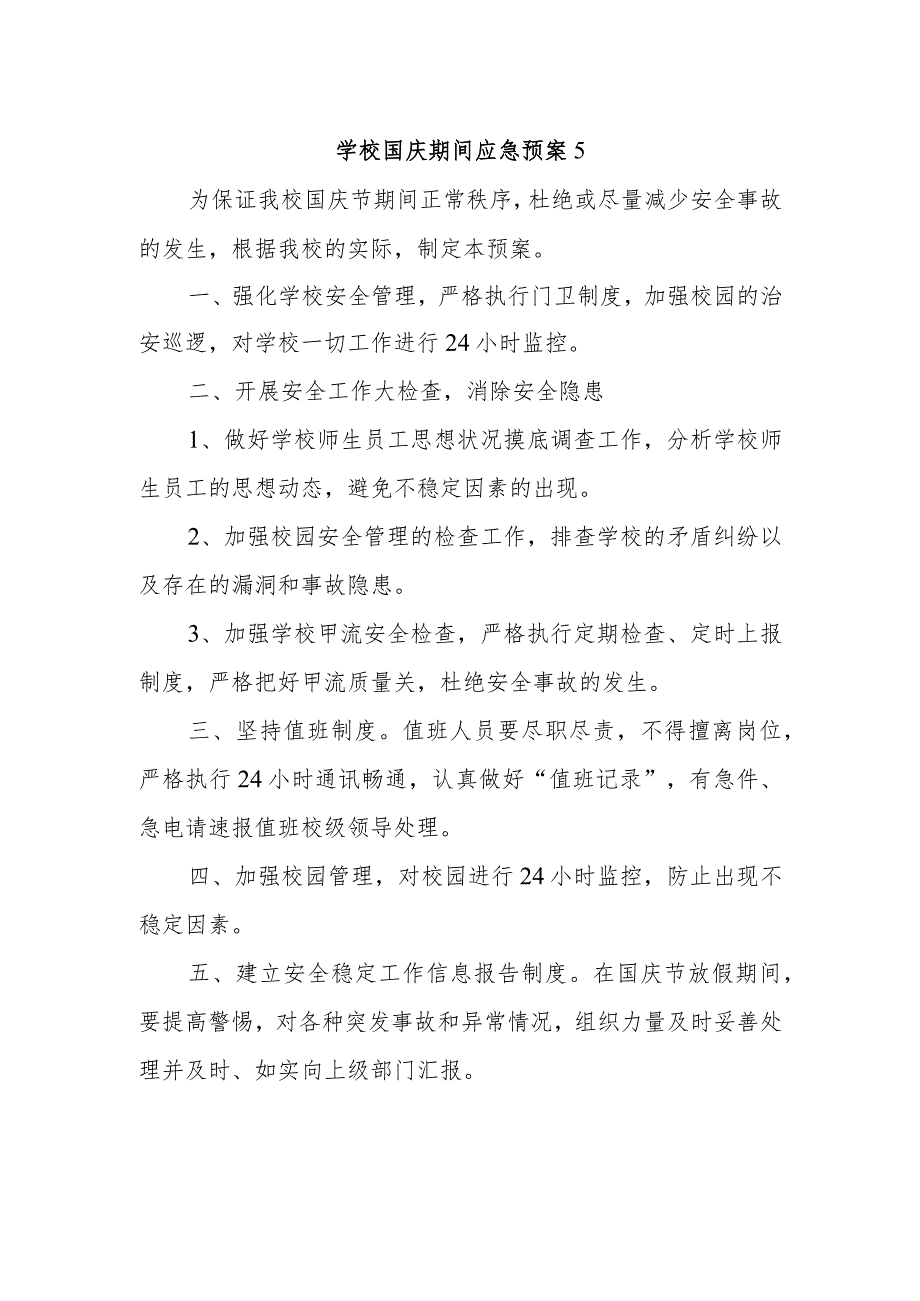 学校国庆期间应急预案 5
为保证我校国庆节期间正常秩序，杜绝或尽量减少安全事故
的发生，根据我校的实际，制定本预案。
一、强化学校安全管理，严格执行门卫制度，加强校园的治
安巡逻，对学校一切工作进行 24 小时监控。
二、开展安全工作大检查，消除安全隐患
1、做好学校师生员工思想状况摸底调查工作，分析学校师
生员工的思想动态，避免不稳定因素的出现。
2、加强校园安全管理的检查工作，排查学校的矛盾纠纷以
及存在的漏洞和事故隐患。
3、加强学校甲流安全检查，严格执行定期检查、定时上报
制度，严格把好甲流质量关，杜绝安全事故的发生。
三、坚持值班制度。值班人员要尽职尽责，不得擅离岗位，
严格执行 24 小时通讯畅通，认真做好“值班记录”，有急件、
急电请速报值班校级领导处理。
四、加强校园管理，对校园进行 24 小时监控，防止出现不
稳定因素。
五、建立安全稳定工作信息报告制度。在国庆节放假期间，
要提高警惕，对各种突发事故和异常情况，组织力量及时妥善处
理并及时、如实向上级部门汇报。